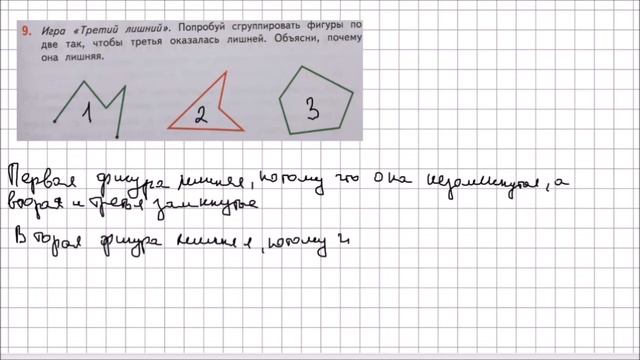 9. Игра «Третий лишний». Попробуй сгруппировать фигуры по
две так, чтобы третья оказалась лишней. Объясни, почему
она лишняя.
1 2 3
Первая фигура лишняя, потому что она незамкнутая, а
вторая и третья замкнутые
Вторая фигура лишняя, потому ч